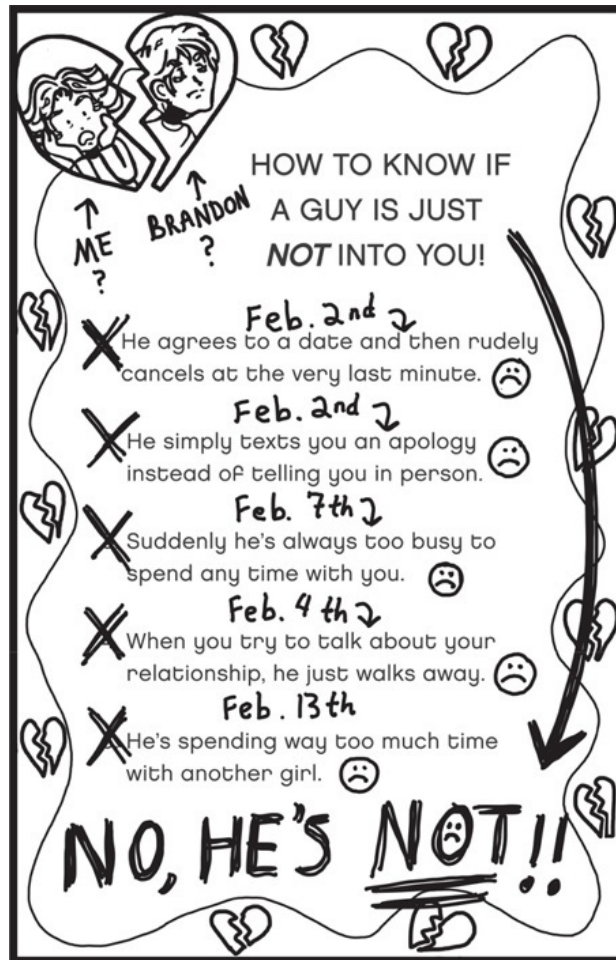 ME
?
BRANDON
?
HOW TO KNOW IF
A GUY IS JUST
NOT INTO YOU!
Feb. 2nd
He agrees to a date and then rudely
cancels at the very last minute.
Feb. 2nd
He simply texts you an apology
instead of telling you in person.
Feb. 7th
Suddenly he's always too busy to
spend any time with you.
Feb. 4th
When you try to talk about your
relationship, he just walks away.
Feb. 13th
He's spending way too much time
with another girl.
NO, HE'S NOT!!